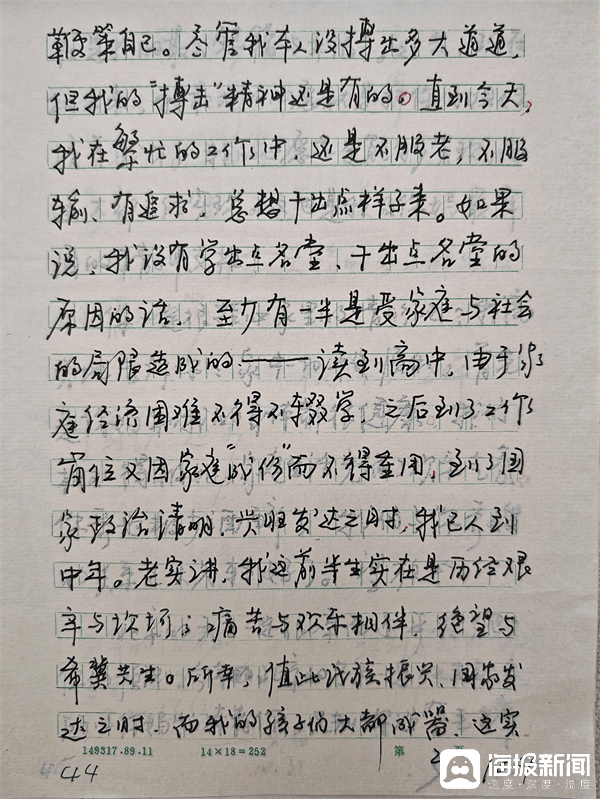 鞭策自己。尽管我本人没搏出多大道道,
但我的"搏击"精神还是有的。直到今天,
我在繁忙的工作中,还是不服老,不服
输、有追求,总想干出点样子来。如果
说,我没有学出点名堂、干出点名堂的
原因的话,至少有一半是受家庭与社会
的局限造成的——读到高中,由于家
庭经济困难不得不辍学,之后到了工作
岗位又因家庭"成份"而不得重用,到了国
家政治清明、兴旺发达之时,我已人到
中年。老实讲,我这前半生实在是历经艰
辛与坎坷;痛苦与欢乐相伴,绝望与
希冀共生。所幸,值此民族振兴、国家发
达之时,而我的孩子们大都成器,这实
149317.89.11 14×18=252 第
44
海报新闻
速度·深度·温度